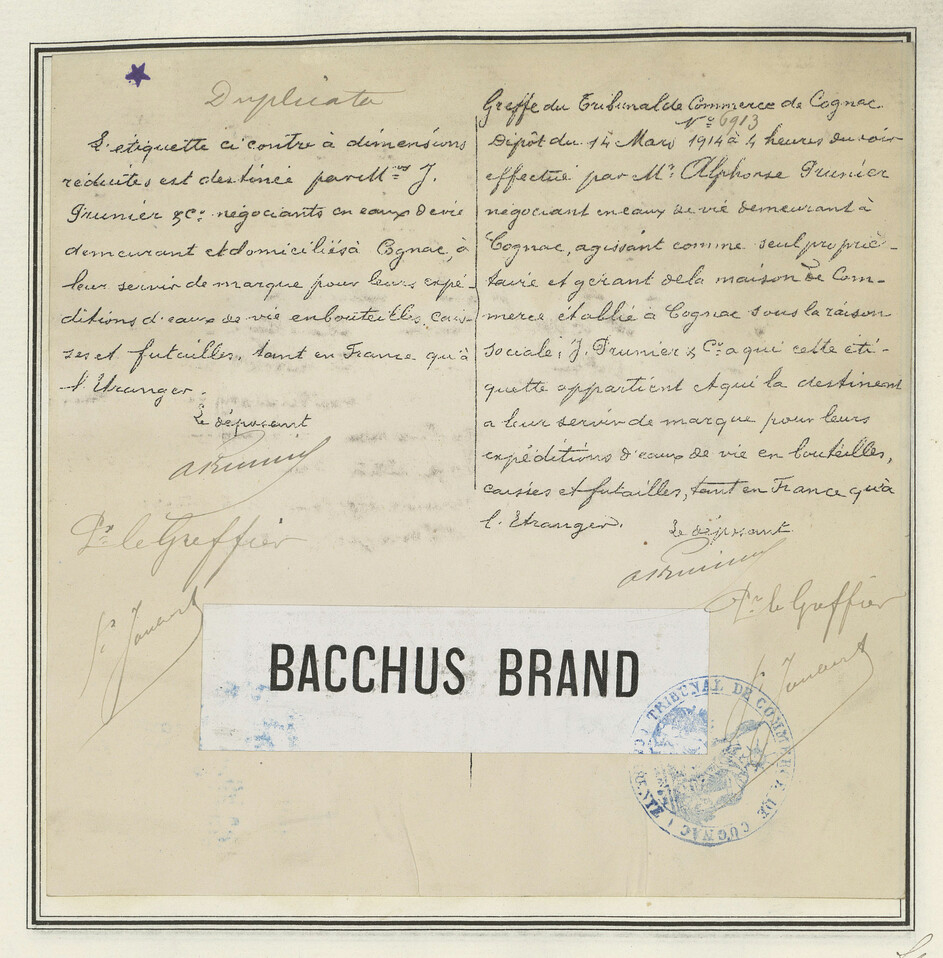 Duplicata
L'étiquette ci contre à dimensions
réduites est destinée par Mrs J.
Prunier & Co négociants en eaux de vie
demeurant et domiciliés à Cognac, à
leur servir de marque pour leurs expé-
ditions d'eaux de vie en bouteilles, cais-
ses et futailles, tant en France qu'à
l'Etranger.
Le déposant
A Prunier
Pr le Greffier
Greffe du Tribunal de Commerce de Cognac
No 6913
Dépôt du 14 Mars 1914 à 4 heures du soir
effectué par Mr Alphonse Prunier
négociant en eaux de vie demeurant à
Cognac, agissant comme seul proprié-
taire et gérant de la maison de Com-
merce établie à Cognac sous la raison
sociale; J. Prunier & Co a qui cette éti-
quette appartient et qui la destinent
a leur servir de marque pour leurs
expéditions d'eaux de vie en bouteilles,
caisses et futailles, tant en France qu'à
l'Etranger.
Le déposant
A Prunier
Pr le Greffier
BACCHUS BRAND
TRIBUNAL DE COMMERCE DE COGNAC